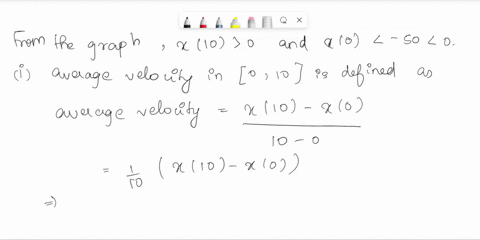 From the graph, x(10) > 0 and x(0) < -50 < 0.
(i) average velocity in [0, 10] is defined as
average velocity = x(10) - x(0)
10 - 0
= 1/10 (x(10) - x(0))
⇒